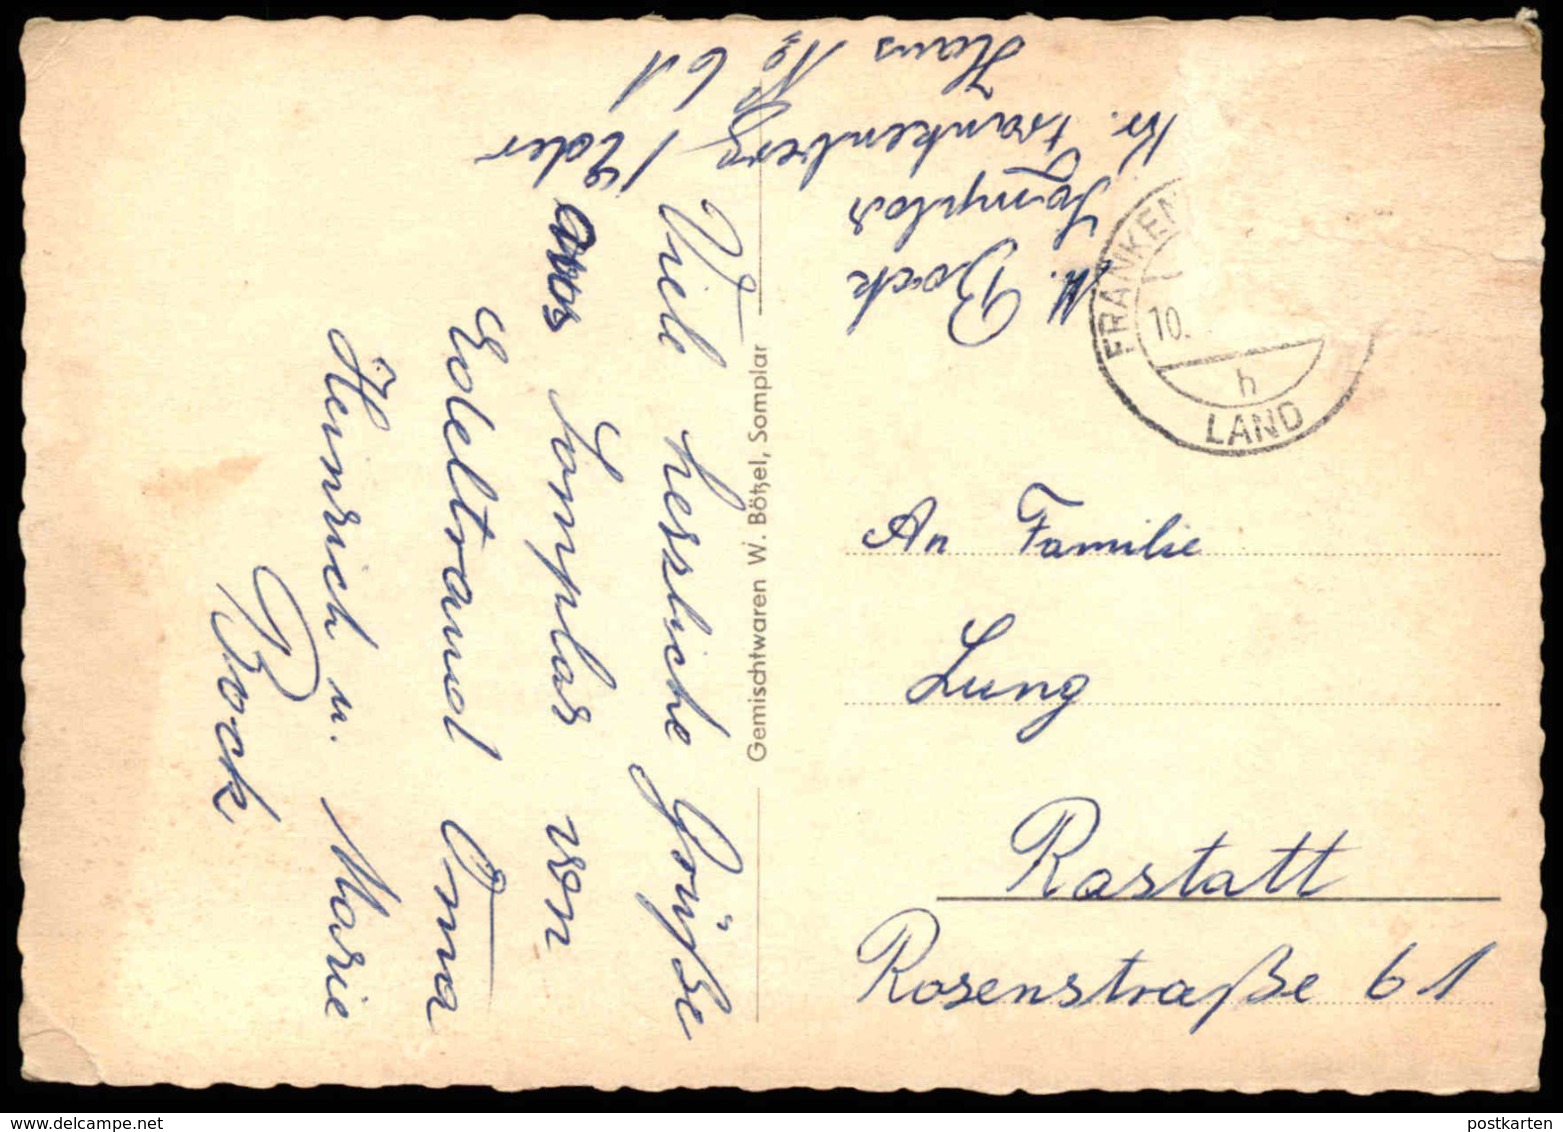 M. Bock
Somplar
Kr. Frankenberg / Eder
Haus No 61
Viele herzliche Grüße
aus Somplar von
Edeltraud Oma
Heinrich u. Marie
Bock.
Gemischtwaren W. Bötzel, Somplar
FRANKEN
10.
h
LAND
An Familie
Lung
Rastatt
Rosenstraße 61
postkarten